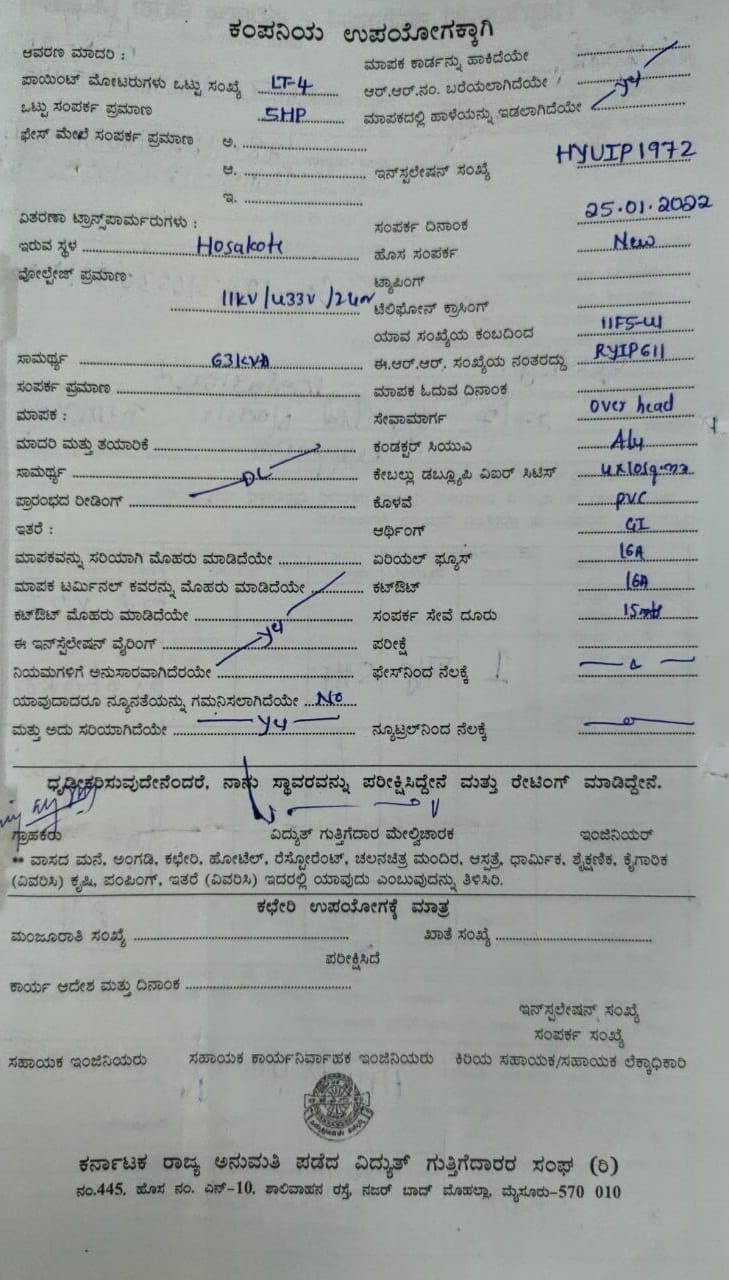 ಕಂಪನಿಯ ಉಪಯೋಗಕ್ಕಾಗಿ
ಆವರಣ ಮಾದರಿ :
ಮಾಪಕ ಕಾರ್ಡನ್ನು ಹಾಕಿದೆಯೇ
ಪಾಯಿಂಟ್ ಮೋಟರುಗಳು ಒಟ್ಟು ಸಂಖ್ಯೆ LT-4
ಆರ್.ಆರ್.ನಂ. ಬರೆಯಲಾಗಿದೆಯೇ
ಒಟ್ಟು ಸಂಪರ್ಕ ಪ್ರಮಾಣ 5HP
ಮಾಪಕದಲ್ಲಿ ಹಾಳೆಯನ್ನು ಇಡಲಾಗಿದೆಯೇ
ಫೇಸ್ ಮೇಲೆ ಸಂಪರ್ಕ ಪ್ರಮಾಣ ಅ.
ಆ.
ಇನ್‌ಸ್ಟಲೇಷನ್ ಸಂಖ್ಯೆ HYUIP1972
ಇ.
ವಿತರಣಾ ಟ್ರಾನ್ಸ್‌ಫಾರ್ಮರುಗಳು :
ಸಂಪರ್ಕ ದಿನಾಂಕ 25.01.2022
ಇರುವ ಸ್ಥಳ Hosakote
ಹೊಸ ಸಂಪರ್ಕ New
ವೋಲ್ಟೇಜ್ ಪ್ರಮಾಣ 11KV/433V
ಟ್ಯಾಪಿಂಗ್
ಟೆಲಿಫೋನ್ ಕ್ರಾಸಿಂಗ್
ಯಾವ ಸಂಖ್ಯೆಯ ಕಂಬದಿಂದ
ಸಾಮರ್ಥ್ಯ 63KVA
ಈ.ಆರ್.ಆರ್. ಸಂಖ್ಯೆಯ ನಂತರದ್ದು RYIP611
ಸಂಪರ್ಕ ಪ್ರಮಾಣ
ಮಾಪಕ ಓದುವ ದಿನಾಂಕ
ಮಾಪಕ :
ಸೇವಾಮಾರ್ಗ over head
ಮಾದರಿ ಮತ್ತು ತಯಾರಿಕೆ
ಕಂಡಕ್ಟರ್ ಸಿಯುಎ Alu
ಸಾಮರ್ಥ್ಯ DC
ಕೇಬಲ್ಲು ಡಬ್ಲ್ಯೂಪಿ ವಿಐರ್ ಸಿಟಿಸ್ 4x10sq.mm
ಪ್ರಾರಂಭದ ರೀಡಿಂಗ್
ಕೊಳವೆ PVC
ಇತರೆ :
ಆರ್ಥಿಂಗ್ GI
ಮಾಪಕವನ್ನು ಸರಿಯಾಗಿ ಮೊಹರು ಮಾಡಿದೆಯೇ
ಏರಿಯಲ್ ಫ್ಯೂಸ್ 16A
ಮಾಪಕ ಟರ್ಮಿನಲ್ ಕವರನ್ನು ಮೊಹರು ಮಾಡಿದೆಯೇ
ಕಟ್‌ಔಟ್ 16A
ಕಟ್‌ಔಟ್ ಮೊಹರು ಮಾಡಿದೆಯೇ
ಸಂಪರ್ಕ ಸೇವೆ ದೂರು 15mts
ಈ ಇನ್‌ಸ್ಟೆಲೇಷನ್ ವೈರಿಂಗ್
ಪರೀಕ್ಷೆ
ನಿಯಮಗಳಿಗೆ ಅನುಸಾರವಾಗಿದೆರಯೇ
ಫೇಸ್‌ನಿಂದ ನೆಲಕ್ಕೆ
ಯಾವುದಾದರೂ ನ್ಯೂನತೆಯನ್ನು ಗಮನಿಸಲಾಗಿದೆಯೇ No
ಮತ್ತು ಅದು ಸರಿಯಾಗಿದೆಯೇ
ನ್ಯೂಟ್ರಲ್‌ನಿಂದ ನೆಲಕ್ಕೆ
ಧೃಢೀಕರಿಸುವುದೇನೆಂದರೆ, ನಾನು ಸ್ಥಾವರವನ್ನು ಪರೀಕ್ಷಿಸಿದ್ದೇನೆ ಮತ್ತು ರೇಟಿಂಗ್ ಮಾಡಿದ್ದೇನೆ.
ಗ್ರಾಹಕರು ವಿದ್ಯುತ್ ಗುತ್ತಿಗೆದಾರ ಮೇಲ್ವಿಚಾರಕ ಇಂಜಿನಿಯರ್
** ವಾಸದ ಮನೆ, ಅಂಗಡಿ, ಕಛೇರಿ, ಹೋಟೆಲ್, ರೆಸ್ಟೋರೆಂಟ್, ಚಲನಚಿತ್ರ ಮಂದಿರ, ಆಸ್ಪತ್ರೆ, ಧಾರ್ಮಿಕ, ಶೈಕ್ಷಣಿಕ, ಕೈಗಾರಿಕ
(ವಿವರಿಸಿ) ಕೃಷಿ, ಪಂಪಿಂಗ್, ಇತರೆ (ವಿವರಿಸಿ) ಇದರಲ್ಲಿ ಯಾವುದು ಎಂಬುವುದನ್ನು ತಿಳಿಸಿರಿ.
ಕಛೇರಿ ಉಪಯೋಗಕ್ಕೆ ಮಾತ್ರ
ಮಂಜೂರಾತಿ ಸಂಖ್ಯೆ ಖಾತೆ ಸಂಖ್ಯೆ
ಪರೀಕ್ಷಿಸಿದೆ
ಕಾರ್ಯ ಆದೇಶ ಮತ್ತು ದಿನಾಂಕ
ಇನ್‌ಸ್ಟಲೇಷನ್ ಸಂಖ್ಯೆ
ಸಂಪರ್ಕ ಸಂಖ್ಯೆ
ಸಹಾಯಕ ಇಂಜಿನಿಯರು ಸಹಾಯಕ ಕಾರ್ಯನಿರ್ವಾಹಕ ಇಂಜಿನಿಯರು ಕಿರಿಯ ಸಹಾಯಕ/ಸಹಾಯಕ ಲೆಕ್ಕಾಧಿಕಾರಿ
ಕರ್ನಾಟಕ ರಾಜ್ಯ ಅನುಮತಿ ಪಡೆದ ವಿದ್ಯುತ್ ಗುತ್ತಿಗೆದಾರರ ಸಂಘ (ರಿ)
ನಂ.445, ಹೊಸ ನಂ. ಎನ್-10, ಶಾಲಿವಾಹನ ರಸ್ತೆ, ನಜರ್ ಬಾದ್ ಮೊಹಲ್ಲಾ, ಮೈಸೂರು-570 010